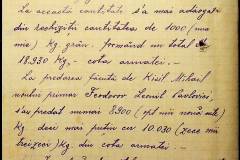 La această cantitate s'a mai adăogat
din rechiziții cantitatea de 1000 (una
mie) Kg grâu, formând un total de
18.930 Kg, - cota armatei. -
La predarea făcută de Kisil Mihael
nostru primar Teodorov Leonil Pavlovici,
s'au predat numai 8900 (opt mii nouă sute)
Kg deci mai puțin cu 10.030 (zece mii
treizeci) Kg. din cota armatei. -